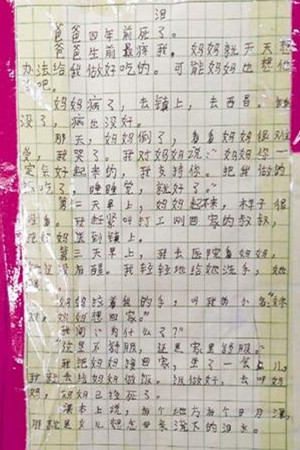 泪
爸爸四年前死了。
爸爸生前最疼我，妈妈就天天想
办法给我做好吃的。可能妈妈也想他
了吧。
妈妈病了，去镇上，去西昌。钱
没了，病也没好。
那天，妈妈倒了，看着妈妈很难
受，我哭了。我对妈妈说：“妈妈你一
定会好起来的，我支持你。把我做的
饭吃了，睡睡觉，就好了。”
第二天早上，妈妈起不来，样子很
难看。我赶紧叫打工刚回家的叔叔，
把妈妈送到镇上。
第三天早上，我去医院看妈妈，
她没有醒。我轻轻地给她洗手，她
妈妈拉着我的手，叫我的小名“妹
妹，妈妈想回家。”
我问：“为什么了？”
“这里不舒服，还是家里舒服。”
我把妈妈接回家，坐了一会儿，
我就去给妈妈做饭。饭做好，去叫妈
妈，妈妈已经死了。
课本上说，有个地方有个日月潭，
那就是女儿想念母亲流下的泪水。